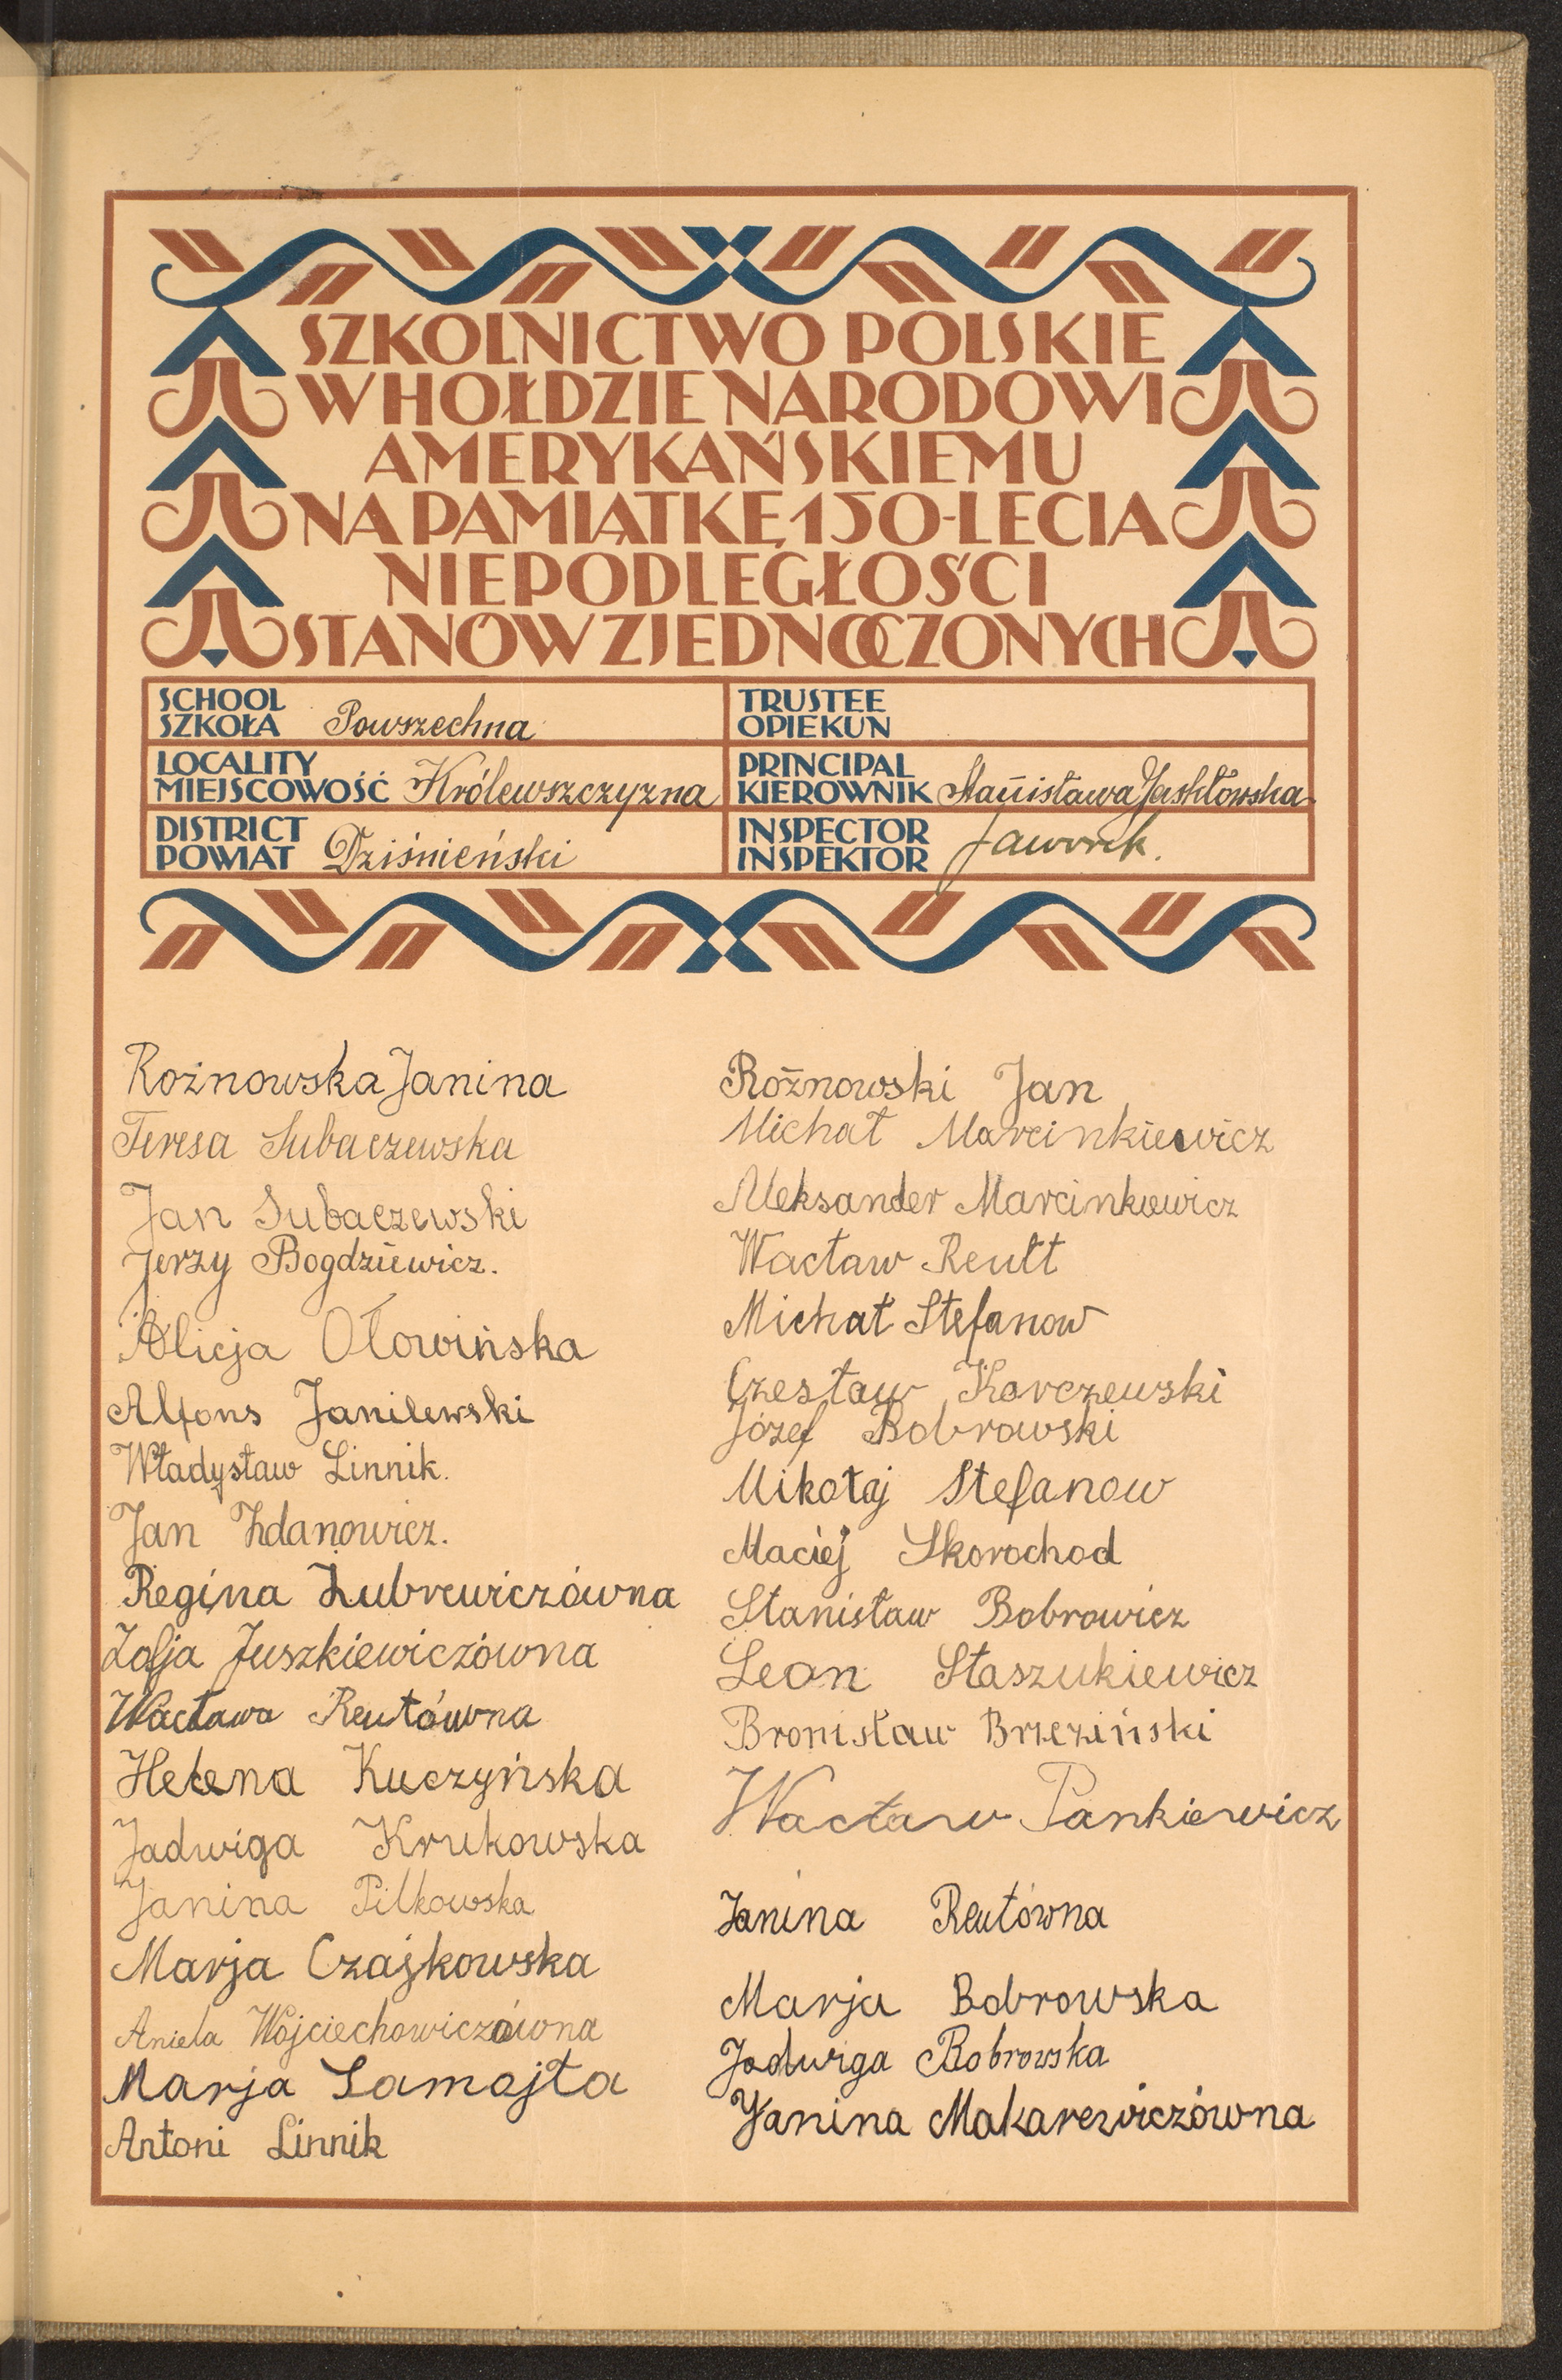 SZKOLNICTWO POLSKIE
W HOŁDZIE NARODOWI
AMERYKAŃSKIEMU
NA PAMIĄTKĘ 150-LECIA
NIEPODLEGŁOŚCI
STANÓW ZJEDNOCZONYCH
SCHOOL
SZKOŁA Powszechna
LOCALITY
MIEJSCOWOŚĆ Królewszczyzna
DISTRICT
POWIAT Dziśnieński
TRUSTEE
OPIEKUN
PRINCIPAL
KIEROWNIK Stanisława Jaskłowska
INSPECTOR
INSPEKTOR Jaworek.
Rożnowska Janina
Teresa Subaczewska
Jan Subaczewski
Jerzy Bogdziewicz.
Alicja Ołowińska
Alfons Janilewski
Władysław Linnik.
Jan Zdanowicz.
Regina Zubrewiczówna
Zofja Juszkiewiczówna
Wacława Reutówna
Helena Kuczyńska
Jadwiga Krukowska
Janina Pilkowska
Marja Czajkowska
Aniela Wojciechowiczówna
Marja Samojła
Antoni Linnik
Rożnowski Jan
Michał Marcinkiewicz
Aleksander Marcinkiewicz
Wacław Reutt
Michał Stefanow
Czesław Korczewski
Józef Bobrowski
Mikołaj Stefanow
Maciej Skorochod
Stanisław Bobrowicz
Leon Staszukiewicz
Bronisław Brzeziński
Wacław Pankiewicz
Janina Reutówna
Marja Bobrowska
Jadwiga Bobrowska
Janina Makarewiczówna